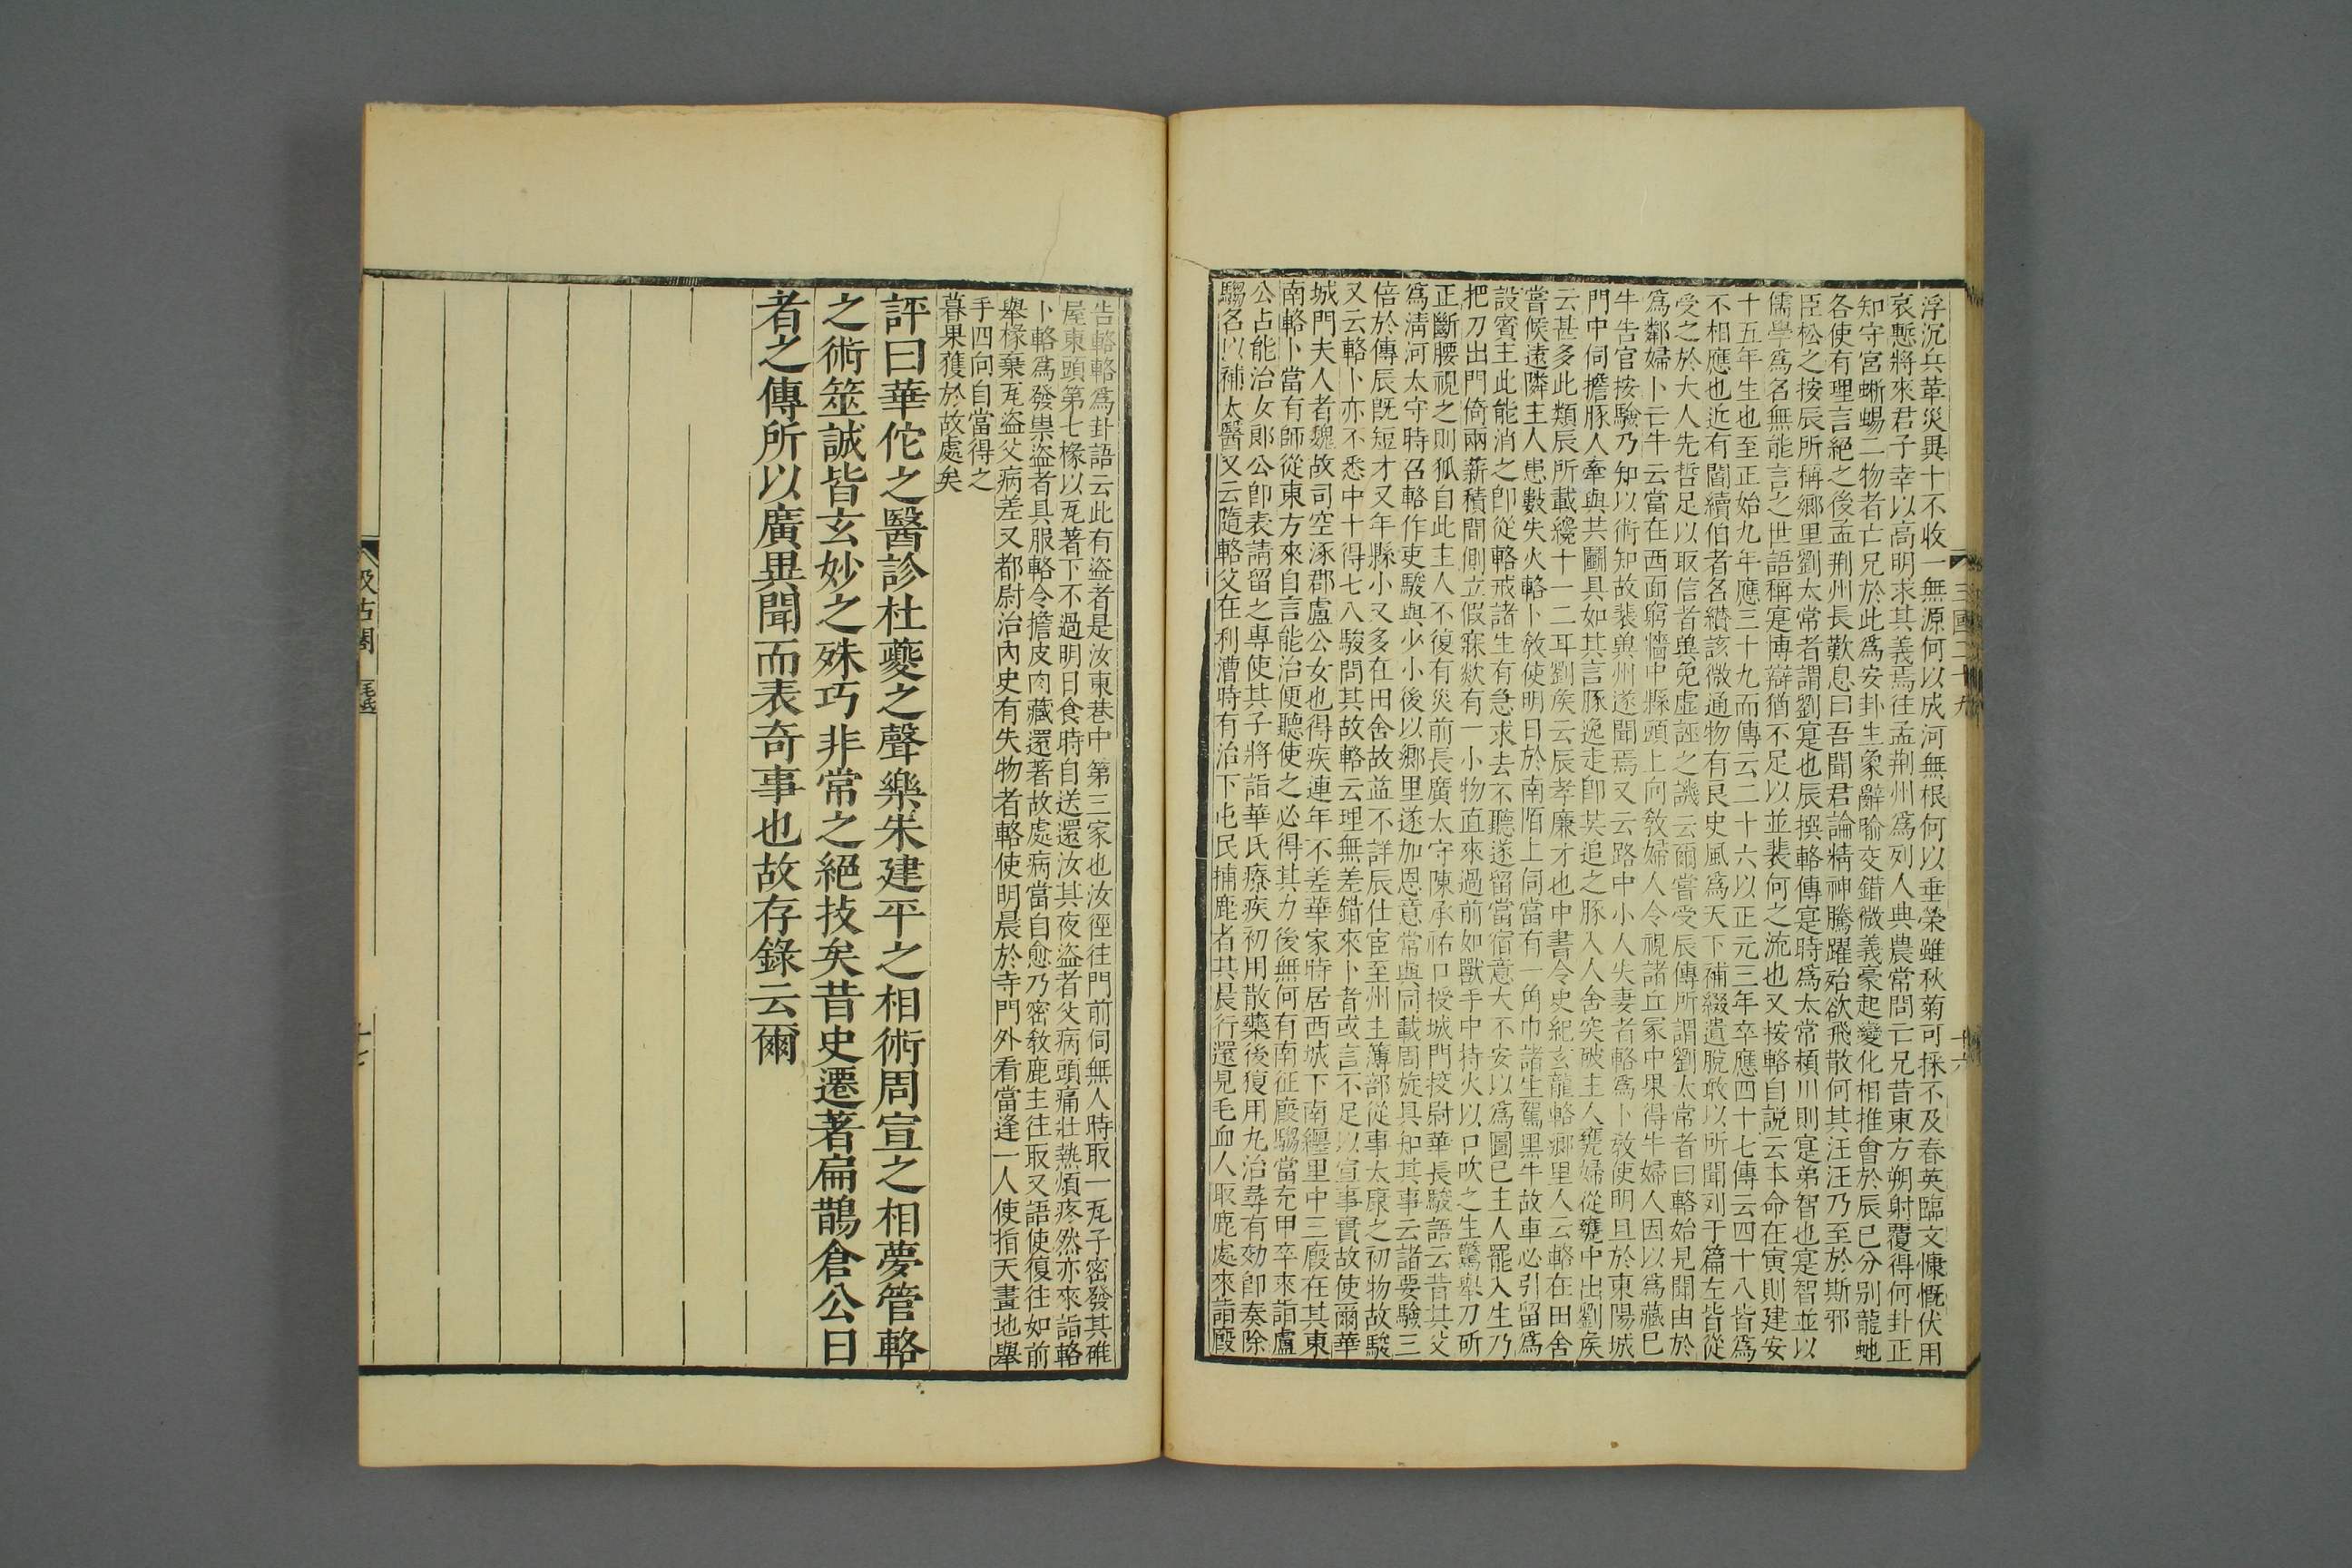 浮沉兵革災異十不收一無源何以成河無根何以垂榮雖秋菊可採不及春英臨文慷慨伏用
哀慙將來君子幸以高明求其義焉往孟荆州爲列人典農常問亡兄昔東方朔射覆得何卦正
知守宮蜥蜴二物者亡兄於此爲安卦生象辭喻交錯微義豪起變化相推會於辰巳分别龍虵
各使有理言絕之後孟荆州長歎息曰吾聞君論精神騰躍殆欲飛散何其汪汪乃至於斯邪
臣松之按辰所稱鄉里劉太常者謂劉寔也辰撰輅傳寔時爲太常潁川則寔弟智也寔智並以
儒學爲名無能言之世語稱寔博辯猶不足以並裴何之流也又按輅自説云本命在寅則建安
十五年生也至正始九年應三十九而傳云二十六以正元三年卒應四十七傳云四十八皆爲
不相應也近有閻續伯者名纘該微通物有良史風爲天下補綴遺脫敢以所聞列于篇左皆從
受之於大人先哲足以取信者兾免虚誣之譏云爾嘗受辰傳所謂劉太常者曰輅始見聞由於
爲鄰婦卜亡牛云當在西面窮牆中縣頭上向教婦人令視諸丘冢中果得牛婦人因以爲藏已
牛告官按驗乃知以術知故裴兾州遂聞焉又云路中小人失妻者輅爲卜教使明旦於東陽城
門中伺擔豚人牽與共鬭具如其言豚逸走卽共追之豚入人舍突破主人甕婦從甕中出劉矦
云甚多此類辰所載纔十一二耳劉矦云辰孝廉才也中書令史紀玄龍輅鄉里人云輅在田舍
嘗候逺隣主人患數失火輅卜教使明日於南陌上伺當有一角巾諸生駕黑牛故車必引留爲
設賓主此能消之卽從輅戒諸生有急求去不聽遂留當宿意大不安以爲圖已主人罷入生乃
把刀出門倚兩薪積間側立假寐欻有一小物直來過前如獸手中持火以口吹之生驚舉刀斫
正斷腰視之則狐自此主人不復有災前長廣太守陳承祐口授城門校尉華長駿語云昔其父
爲淸河太守時召輅作吏駿與少小後以鄉里遂加恩意常與同載周旋具知其事云諸要驗三
倍於傳辰旣短才又年縣小又多在田舍故益不詳辰仕宦至州主簿部從事太康之初物故駿
又云輅卜亦不悉中十得七八駿問其故輅云理無差錯來卜者或言不足以宣事實故使爾華
城門夫人者魏故司空涿郡盧公女也得疾連年不差華家時居西城下南纏里中三廏在其東
南輅卜當有師從東方來自言能治便聽使之必得其力後無何有南征廏騶當充甲卒來詣盧
公占能治女郎公卽表請留之專使其子將詣華氏療疾初用散藥後復用丸治尋有効卽奏除
騶名以補太醫又云隨輅父在利漕時有治下屯民捕鹿者其晨行還見毛血人取鹿處來詣廏
三國二十九
十六
告輅輅爲卦語云此有盗者是汝東巷中第三家也汝徑往門前伺無人時取一瓦子密發其碓
屋東頭第七椽以瓦著下不過明日食時自送還汝其夜盗者父病頭痛壯熱煩疼然亦來詣輅
卜輅爲發祟盗者具服輅令擔皮肉藏還著故處病當自愈乃密教鹿主往取又語使復往如前
舉椽棄瓦盗父病差又都尉治內史有失物者輅使明晨於寺門外看當逢一人使指天畫地舉
手四向自當得之
暮果獲於故處矣
評曰華佗之醫診杜夔之聲樂朱建平之相術周宣之相夢管輅
之術筮誠皆玄妙之殊巧非常之絕技矣昔史遷著扁鵲倉公日
者之傳所以廣異聞而表奇事也故存錄云爾
汲古閣
十七